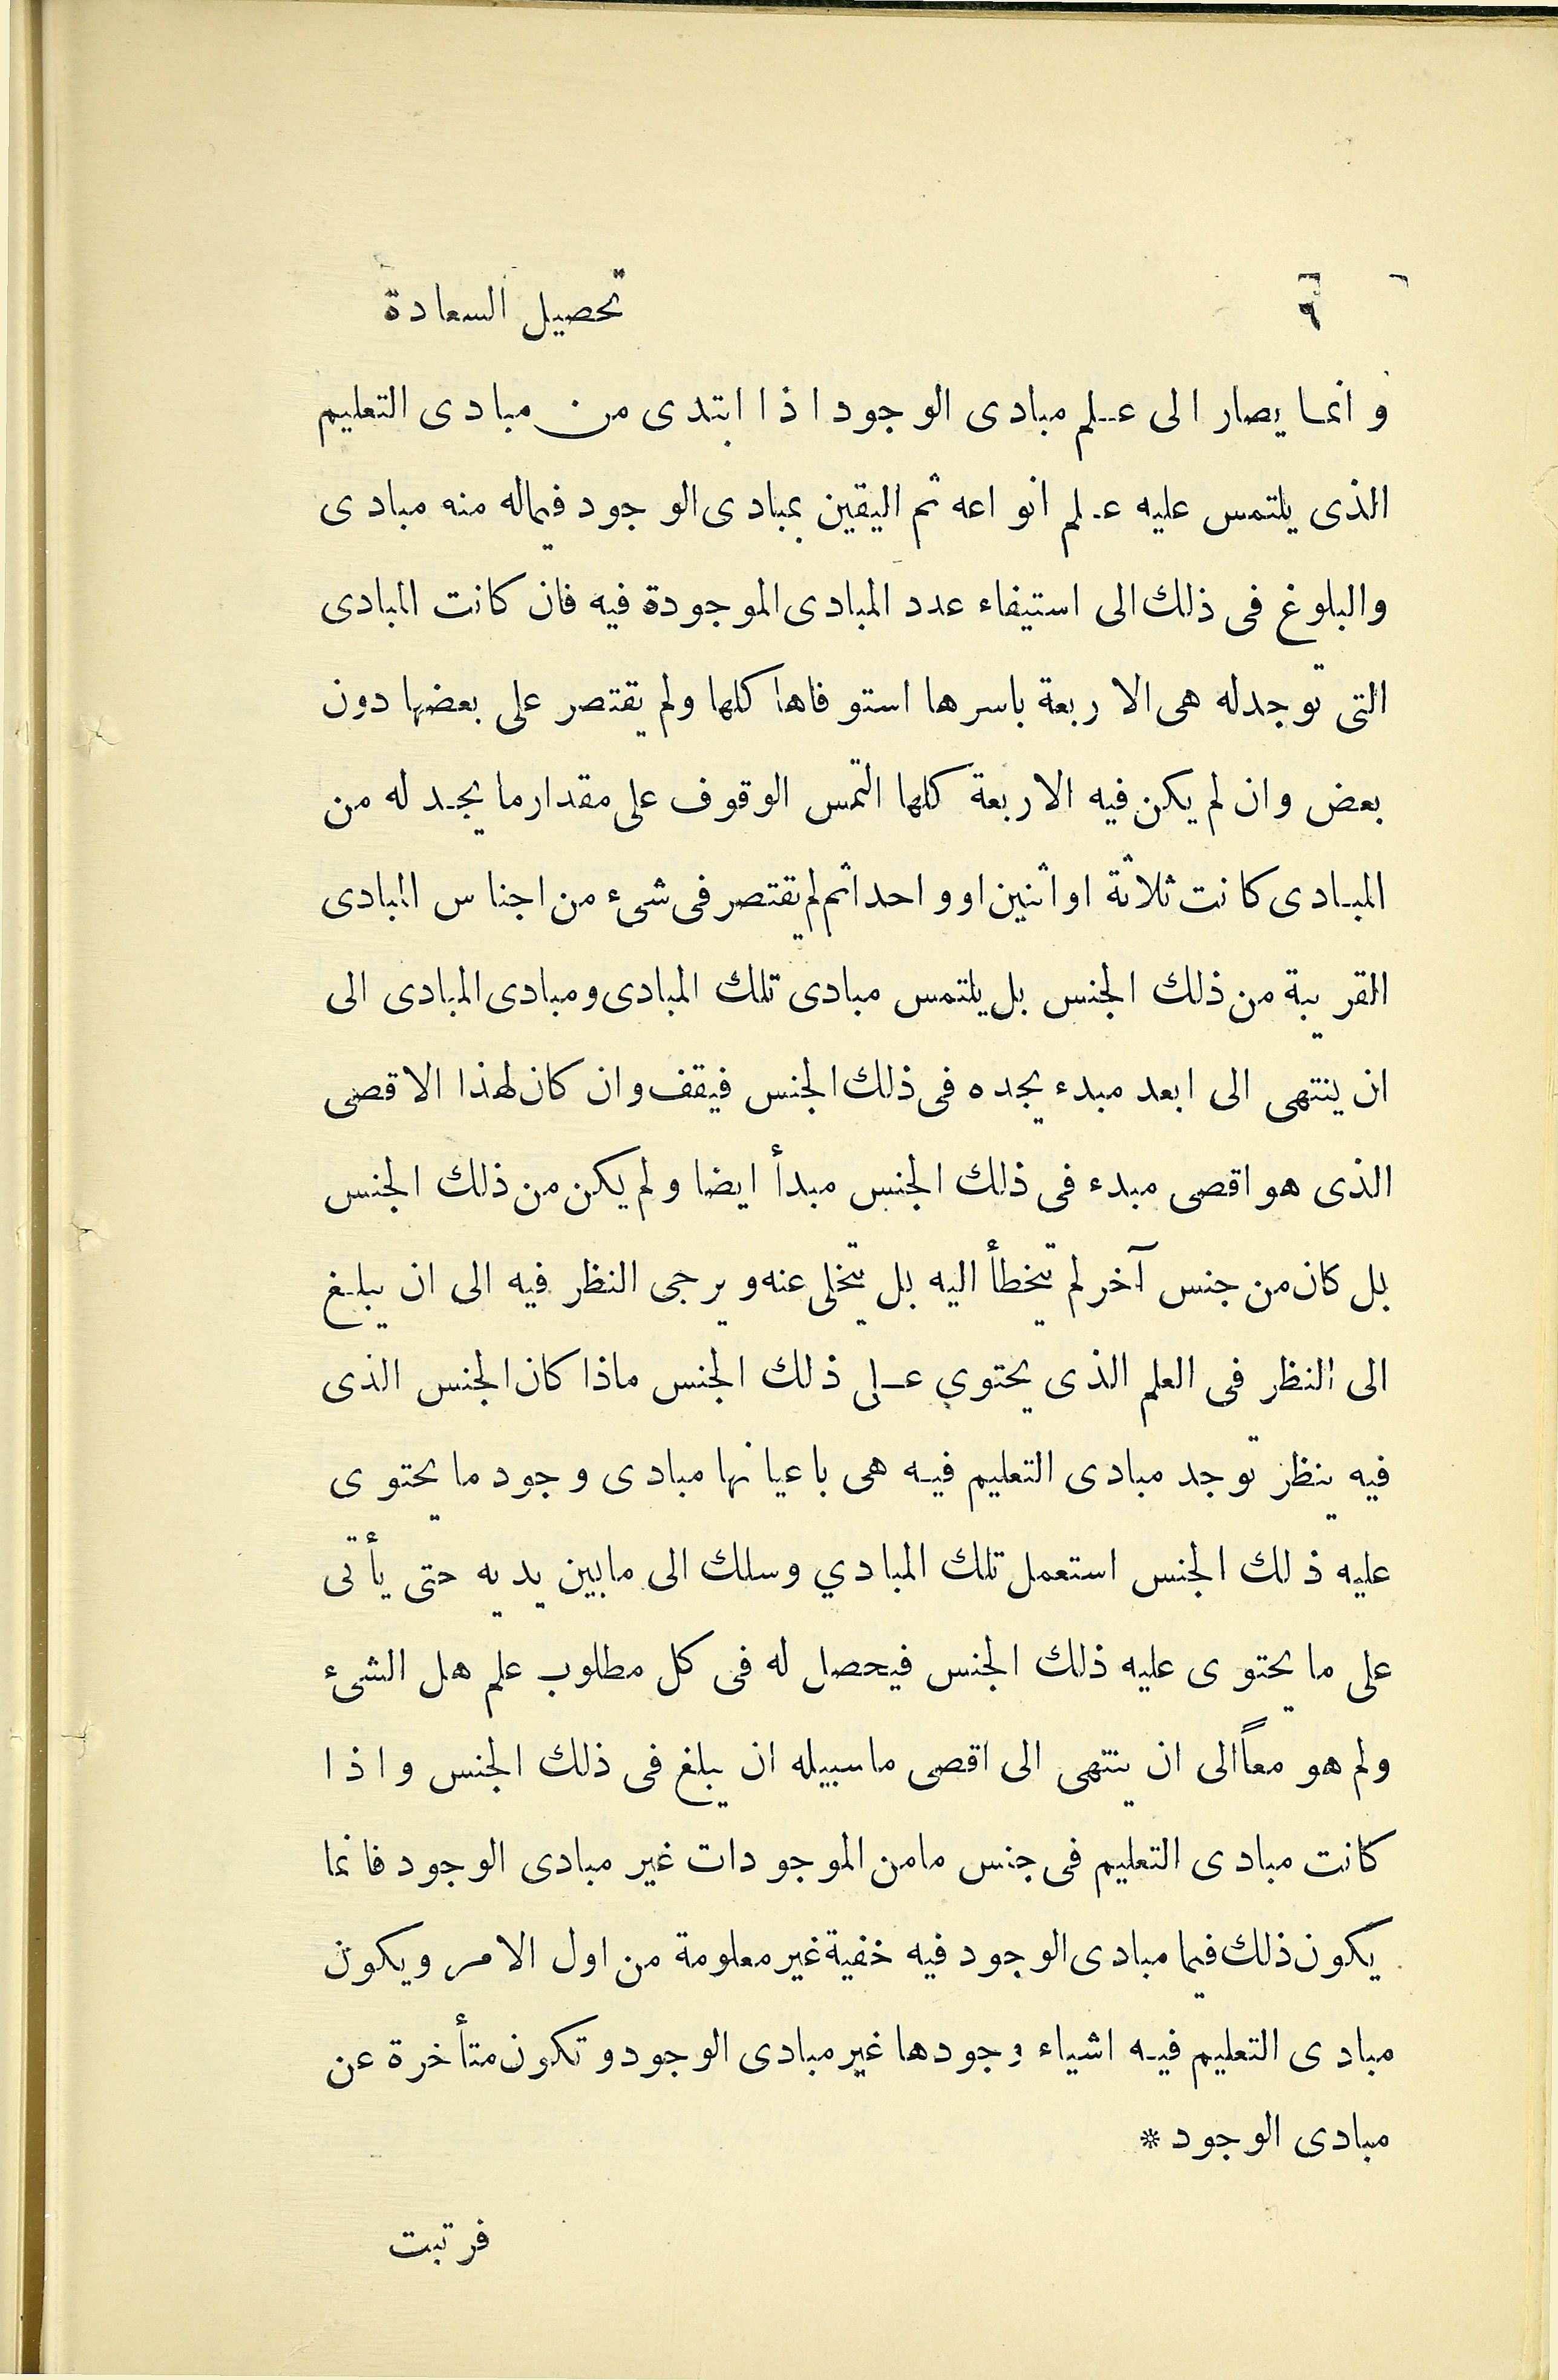 ٦ تحصيل السعادة
وانما يصار الى علم مبادى الوجود اذا ابتدى من مبادى التعليم
الذى يلتمس عليه علم انواعه ثم اليقين بمبادى الوجود فيماله منه مبادى
والبلوغ فى ذلك الى استيفاء عدد المبادى الموجودة فيه فان كانت المبادى
التى توجدله هى الاربعة باسرها استوفاها كلها ولم يقتصر على بعضها دون
بعض وان لم يكن فيه الاربعة كلها التمس الوقوف على مقدار ما يجد له من
المبادى كانت ثلاثة او اثنين او واحدا ثم لم يقتصر فى شىء من اجناس المبادى
القريبة من ذلك الجنس بل يلتمس مبادى تلك المبادى ومبادى المبادى الى
ان ينتهى الى ابعد مبدء يجده فى ذلك الجنس فيقف وان كان لهذا الاقصى
الذى هو اقصى مبدء فى ذلك الجنس مبدأ ايضا ولم يكن من ذلك الجنس
بل كان من جنس آخر لم يتخطأ اليه بل يتخلى عنه ويرجى النظر فيه الى ان يبلغ
الى النظر فى العلم الذى يحتوي على ذلك الجنس ماذا كان الجنس الذى
فيه ينظر توجد مبادى التعليم فيه هى باعيانها مبادى وجود ما يحتوى
عليه ذلك الجنس استعمل تلك المبادي وسلك الى مابين يديه حتى يأتى
على ما يحتوى عليه ذلك الجنس فيحصل له فى كل مطلوب علم هل الشىء
ولم هو معاً الى ان ينتهى الى اقصى ماسبيله ان يبلغ فى ذلك الجنس واذا
كانت مبادى التعليم فى جنس مامن الموجودات غير مبادى الوجود فانما
يكون ذلك فيما مبادى الوجود فيه خفية غير معلومة من اول الامر ويكون
مبادى التعليم فيه اشياء وجودها غير مبادى الوجود وتكون متأخرة عن
مبادى الوجود *
فرتبت